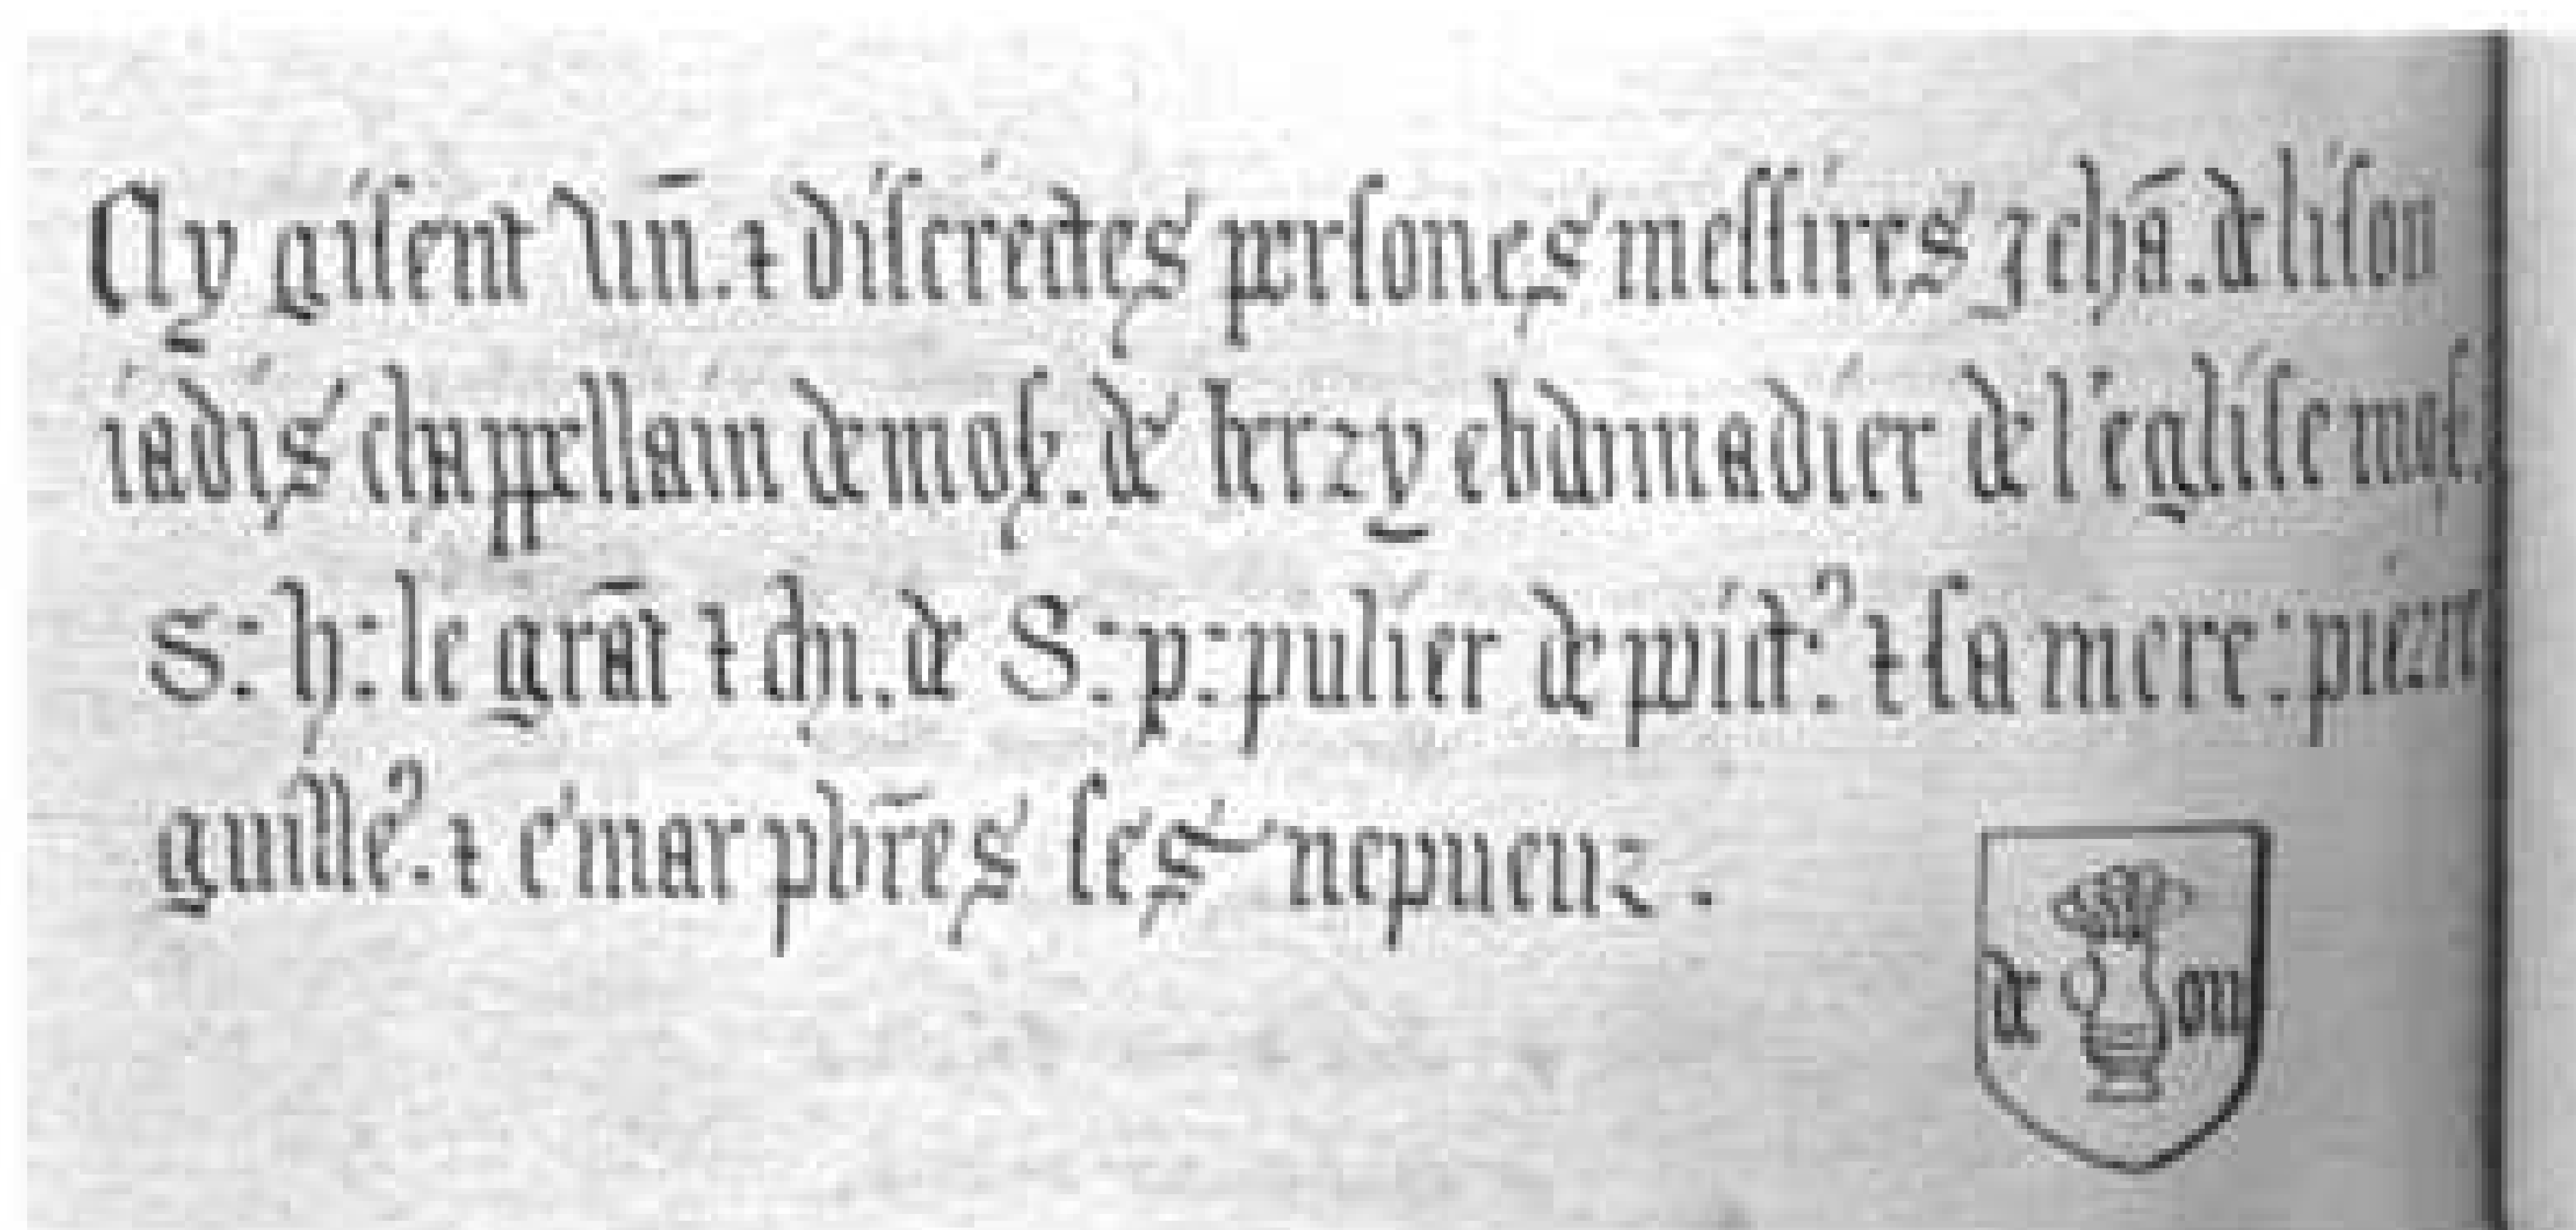 Cly gisent vũn. ⁊ discrectes persones messires Jehã. de lison
iadis chappellain de mos. de herzy ebdomadier de l'eglise mos.
S: h: le grãt ⁊ chi. de S: p: pulier de pict: ⁊ sa mere:
guille. ⁊ e'mar pb̃res ses nepueuz.
de on